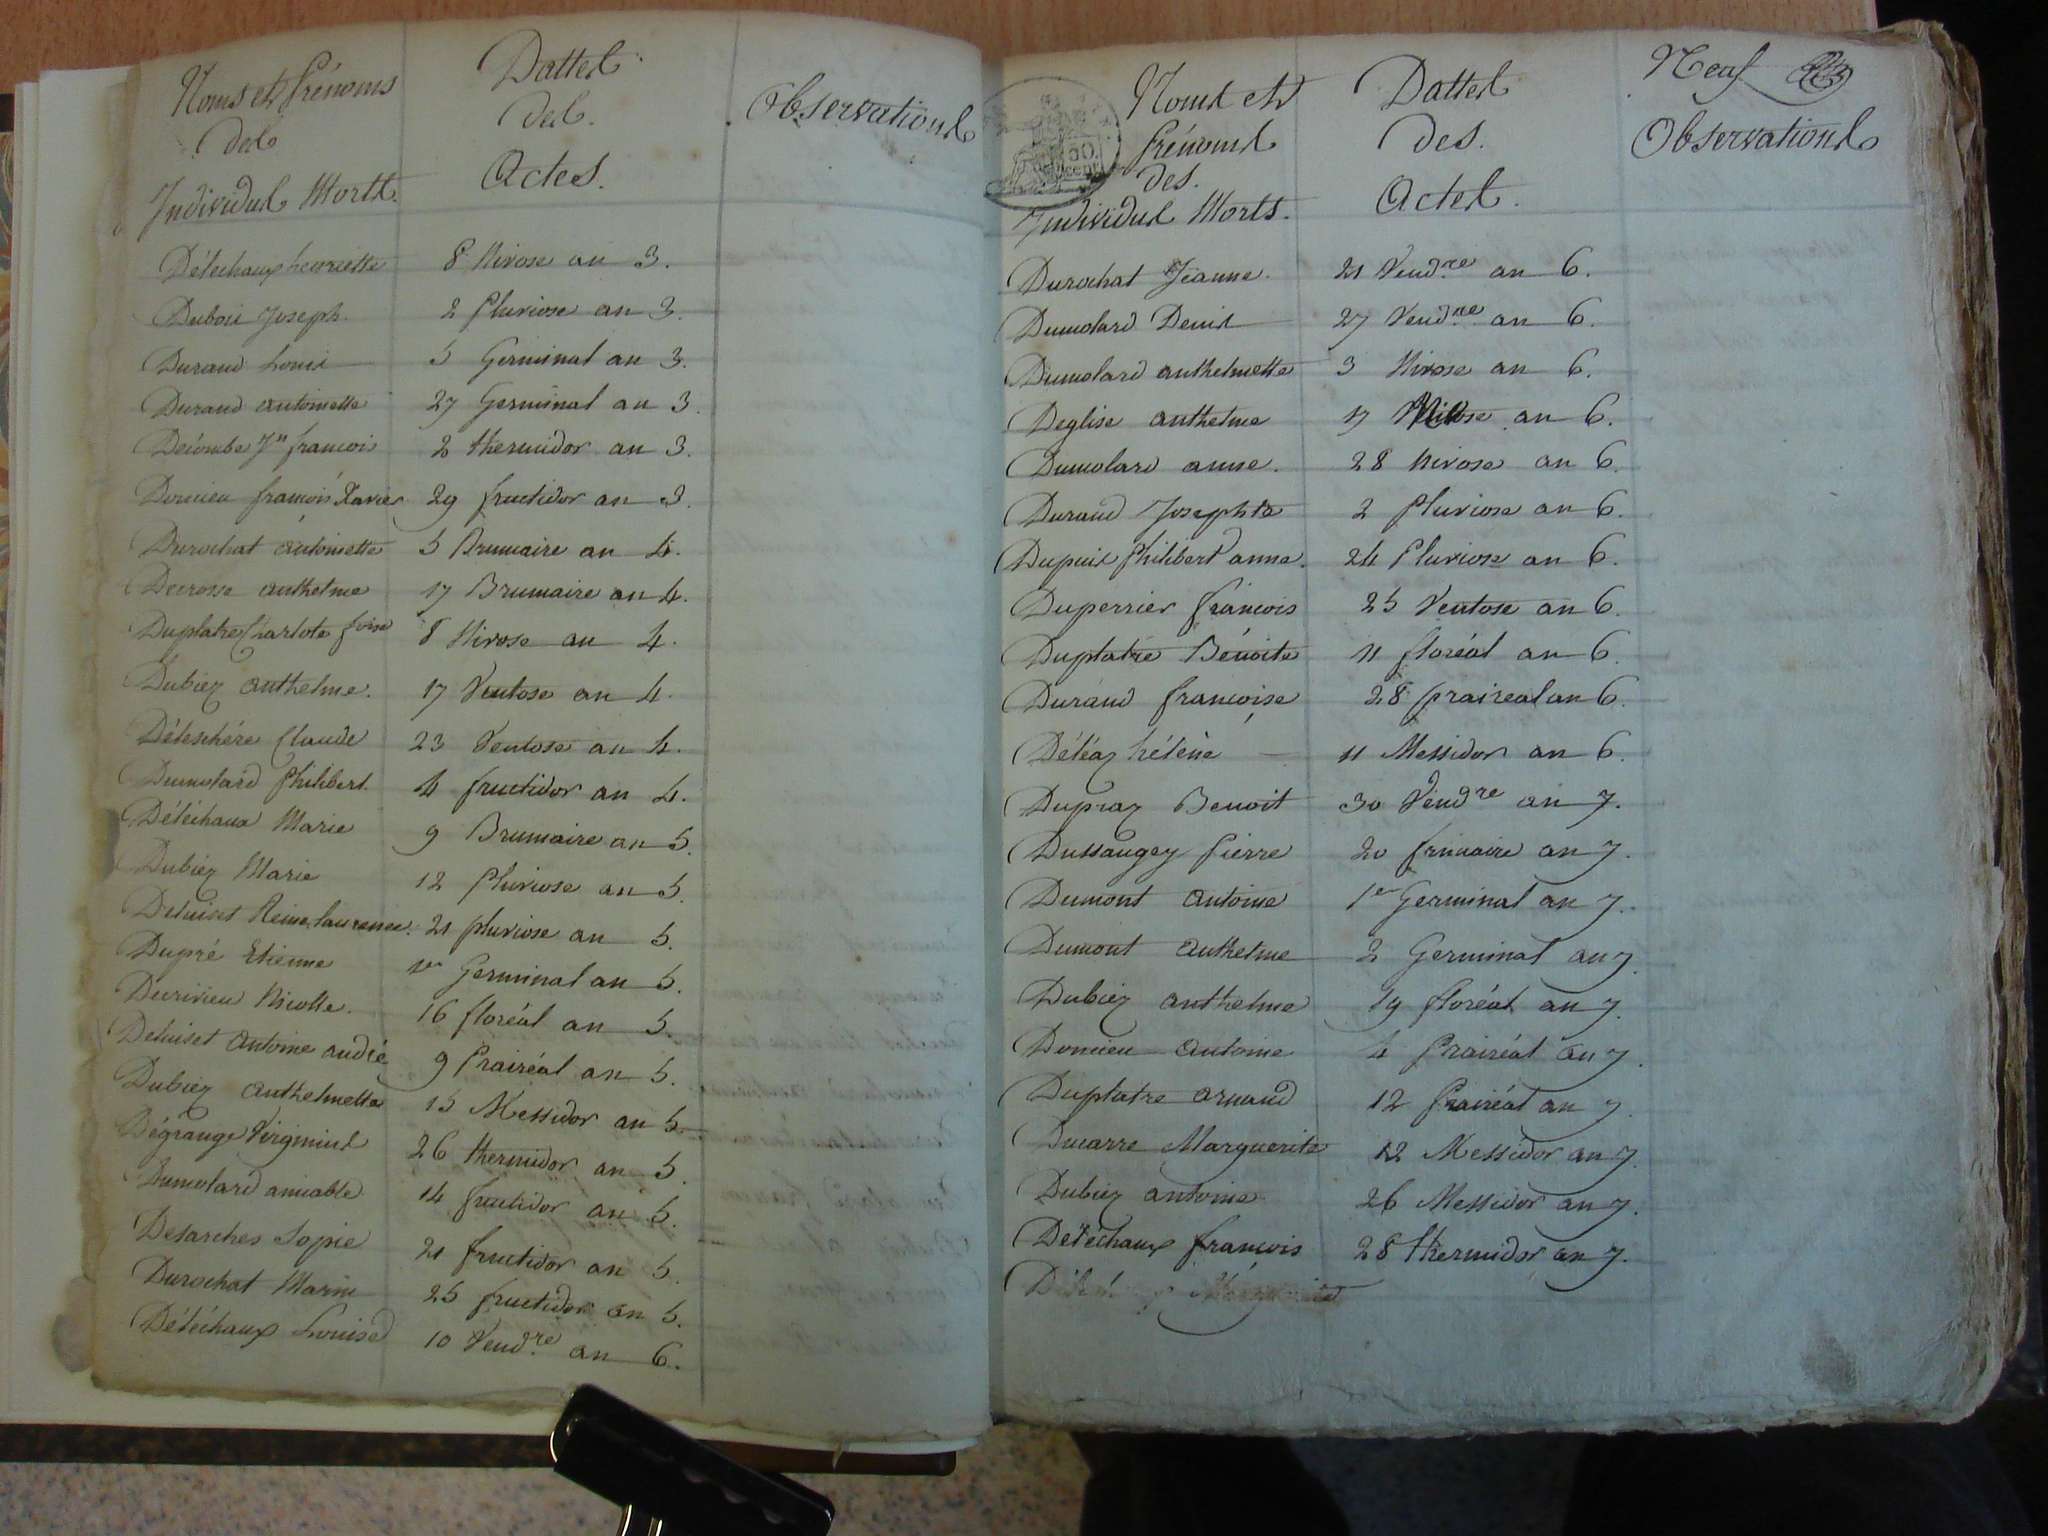 Noms et Prénoms
des
Individus Morts.
Dattes
des
Actes.
Observations
Détéchaux henriette 8 Nivose an 3.
Dubois Joseph. 2 Pluviose an 3.
Durand Louis 5 Germinal an 3.
Durand antoinette 27 Germinal an 3.
Decombe Jn francois 2 thermidor an 3.
Domieu francois Xavier 29 fructidor an 3.
Durochat antoinette 5 Brumaire an 4.
Decrosse anthelme 17 Brumaire an 4.
Duplatre Charlote foise 8 Nivose an 4.
Dubiez anthelme. 17 Ventose an 4.
Claude 23 Ventose an 4.
Dumolard Philibert. 4 fructidor an 4.
Détéchaux Marie 9 Brumaire an 5.
Dubiez Marie 12 Pluviose an 5.
Deluiset Reine laurence. 21 pluviose an 5.
Dupré Etienne 1er Germinal an 5.
Nicolle. 16 floréal an 5.
Deluiset antoine andré 9 Prairéal an 5.
Dubiez anthelmette 15 Messidor an 5.
Dégrange 26 thermidor an 5.
Dumolard aimable 14 fructidor an 5.
Desarches Sopie 21 fructidor an 5.
Durochat Marie 25 fructidor an 5.
Détéchaux Louise 10 Vendre an 6.
Noms et
Prénoms
des.
Individus Morts.
Dattes
des.
Actes.
Neuf
Observations
Durochat Jeanne. 21 Vendre an 6.
Dumolard Denis 27 Vendre an 6.
Dumolard anthelmette 3 Nivose an 6.
Deglise anthelme 17 Nivose an 6.
Dumolard anne. 28 Nivose an 6.
Durand Josephte 2 Pluviose an 6.
Dupuis Philibert anne. 24 Pluviose an 6.
Duperrier françois 25 Ventose an 6.
Duplatre Bénoite 11 floréal an 6.
Durand francoise 28 praireal an 6.
Déléaz hélène 11 Messidor an 6.
Dupraz Benoit 30 Vendre an 7.
Dussaugey Pierre 20 frimaire an 7.
Dumont antoine 1er Germinal an 7.
Dumont anthelme 2 Germinal an 7.
Dubiez anthelme 19 floréal an 7.
Domieu antoine 4 Prairéal an 7.
Duplatre armand 12 Prairéal an 7.
Ducarre Marguerite 12 Messidor an 7.
Dubiez antoine 26 Messidor an 7.
Détéchaux francois 28 thermidor an 7.